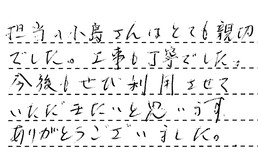 担当の小島さんはとても親切
でした。工事も丁寧でした。
今後もぜひ利用させて
いただきたいと思います
ありがとうございました。